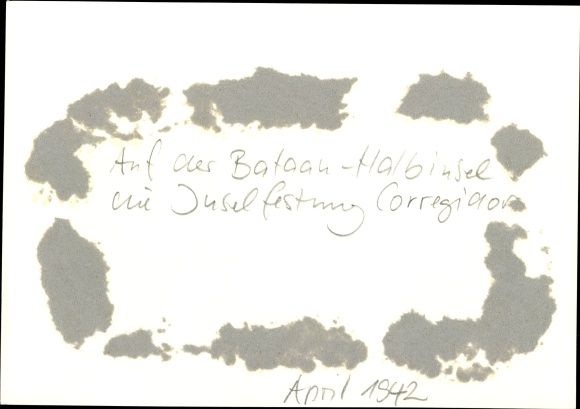 Auf der Bataan-Halbinsel
die Inselfestung Corregidor
April 1942